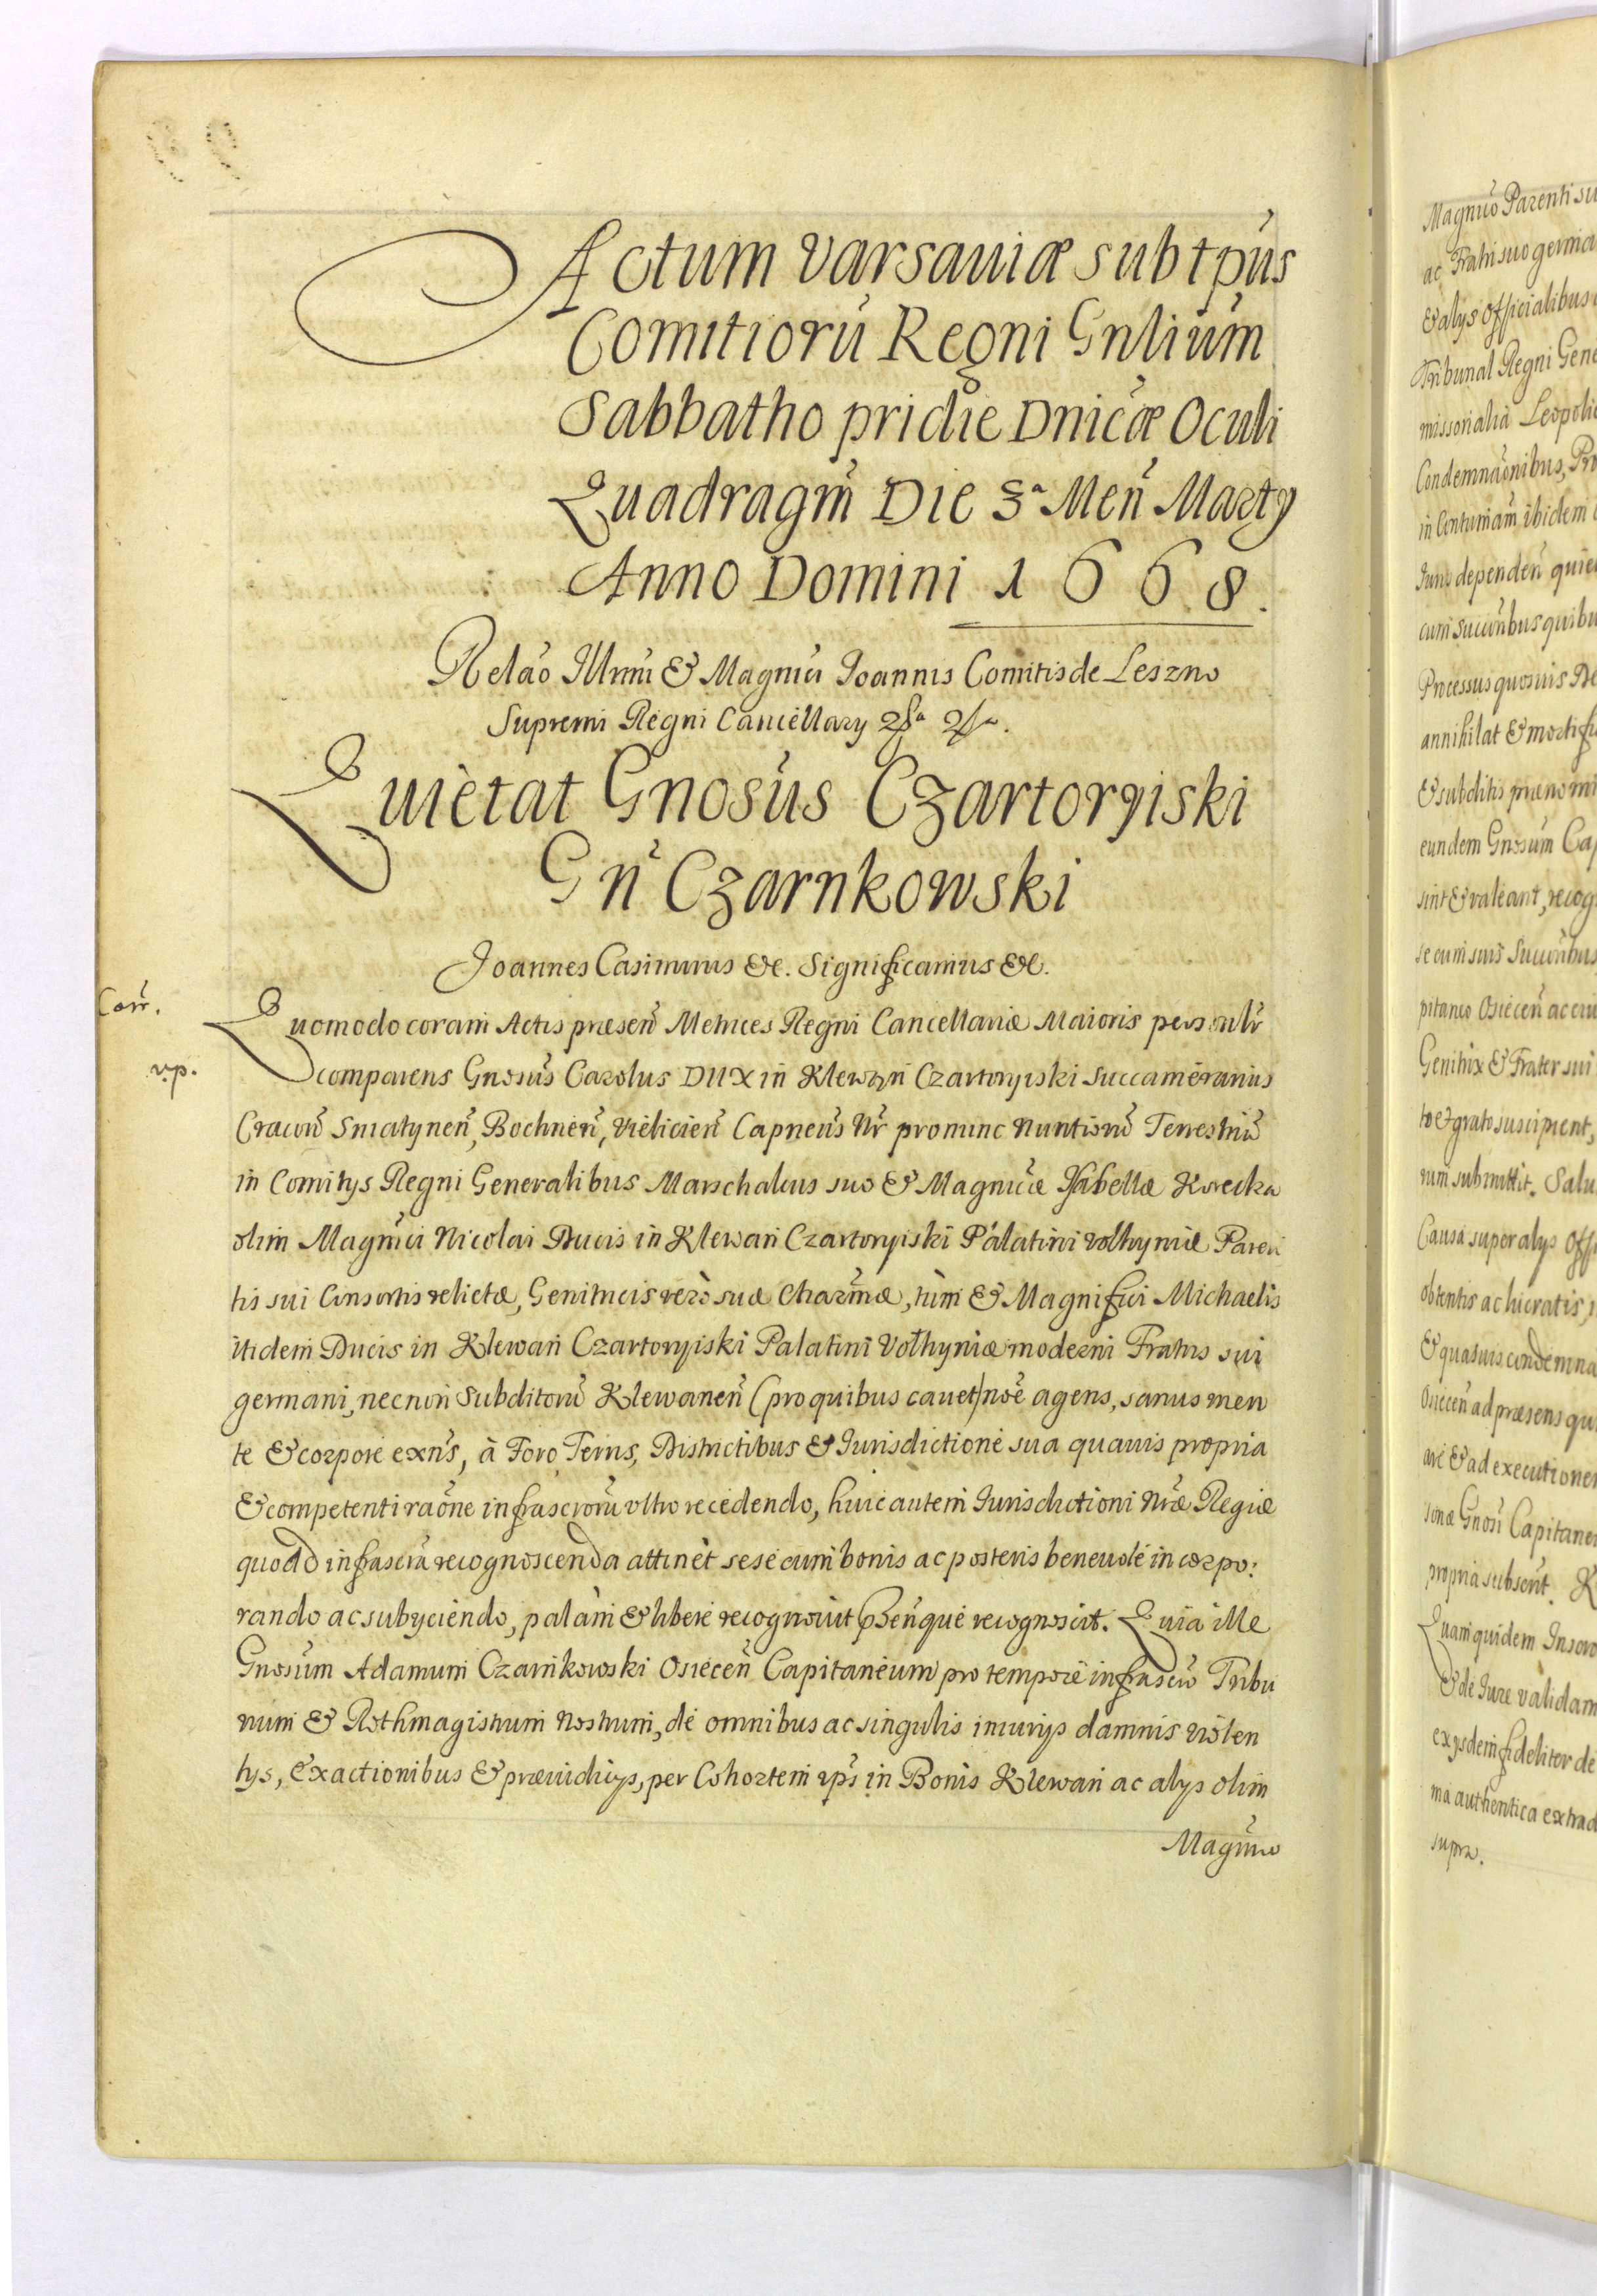 Actum Varsaviæ sub tpus
Comitiorū Regni Gnlium
Sabbatho pridie Dnicæ Oculi
Quadragm̃ Die 3ª Men̄ Marty
Anno Domini 1668.
Relaõ Illrmi & Magnici Joannis Comitis de Leszno
Supremi Regni Cancellary
Quietat Gnosus Czartoryiski
Gn̄ Czarnkowski
Joannes Casimirus &c. Significamus &c.
Corr.
Quomodo coram Actis præsen̄ Metrices Regni Cancellariæ Maioris personlr
vp.
comparens Gnosus Carolus DUX in Klewan Czartoryiski Succamerarius
Cracoñ Sniatynen̄, Bochnen̄, Vielicien̄ Capneus Nr̄ pro nunc Nuntiorū Terrestriū
in Comitys Regni Generalibus Marschalcus suo & Magnicæ Isabellæ Korecka
olim Magnici Nicolai Ducis in Klewan Czartoryiski Palatini Volhyniæ Paren
tis sui Consortis relictæ, Genitricis vero suæ Charmæ, tum & Magnifici Michaelis
itidem Ducis in Klewan Czartoryiski Palatini Volhyniæ moderni Fratris sui
germani, necnon Subditorū Klewanen̄ (pro quibus cauet) noe agens, sanus men
te & corpore exn̄s, à Foro Terris, Districtibus & Jurisdictione sua quauis propria
& competenti raõne infrascrorū vltro recedendo, huic autem Jurisdictioni Nræ Regiæ
quo ad infrascra recognoscenda attinet sese cum bonis ac posteris beneuole incorpo:
rando ac subyciendo, palàm & libere recognouit psen̄que recognoscit. Quia ille
Gnosum Adamum Czarnkowski Osiecen̄ Capitaneum pro tempore infrascro Tribu
num & Rothmagistrum Nostrum, de omnibus ac singulis iniurys damnis violen
tys, Exactionibus & præiudicys, per Cohortem ips̄ in Bonis Klewan ac alys olim
Magn̄ico
Magn̄ico Parenti su
ac Fratri suo germa
& alys Officialibus
Tribunal Regni Gene
missorialia Leopolie
Condemnaõnibus, Pro
in Contumam ibidem
dependen̄ quie
cum Succribus quibu
Processus quosuis De
annihilat & mortifi
& subditis prænomi
eundem Gnosum Cap
sint & valeant, recog
se cum suis Succribus
pitaneo Osiecen̄ ac eiu
Genitrix & Frater sui
to & grato suscipient,
rum submittit. Salu
Causa super alys Offi
obtentis ac lucratis,
& quasuis condemna
Osiecen̄ ad præsens qu
are & ad executionem
Gnosi Capitane
propria subscrit. K
Quam quidem Inscro
& de Jure validam
exysdem fideliter de
ma authentica extrad
supra.